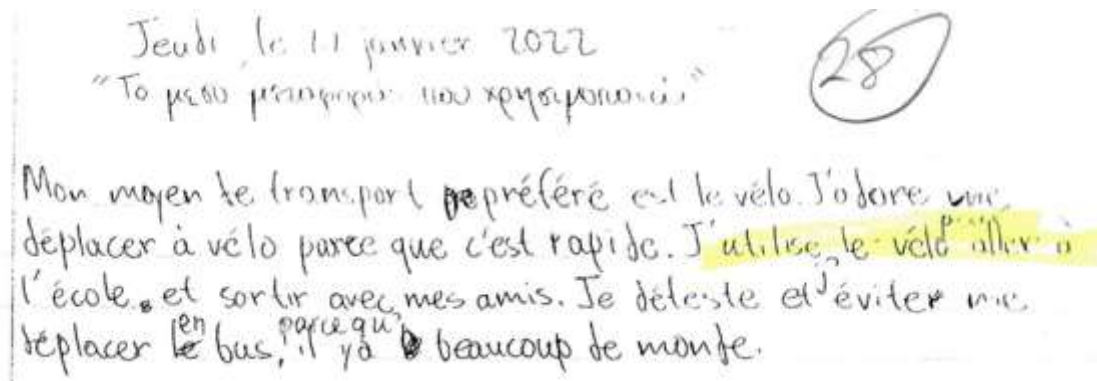 Jeudi, le 11 janvier 2022
28
"Το μεσο μεταφορας που χρησιμοποιώ"
Mon moyen de transport préféré est le vélo. J'adore me
déplacer à vélo parce que c'est rapide. J'utilise le vélo pour aller à
l'école et sortir avec mes amis. Je déteste et j'éviter me
déplacer en bus, parce qu'il y a beaucoup de monde.